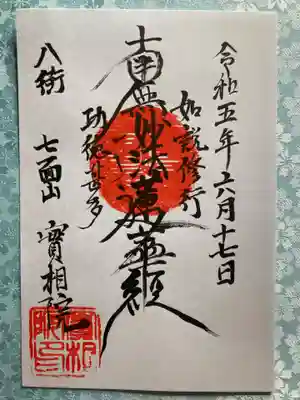 令和五年六月十七日
如説修行
南無妙法蓮華経
功徳甚多
八街 七面山 實相院